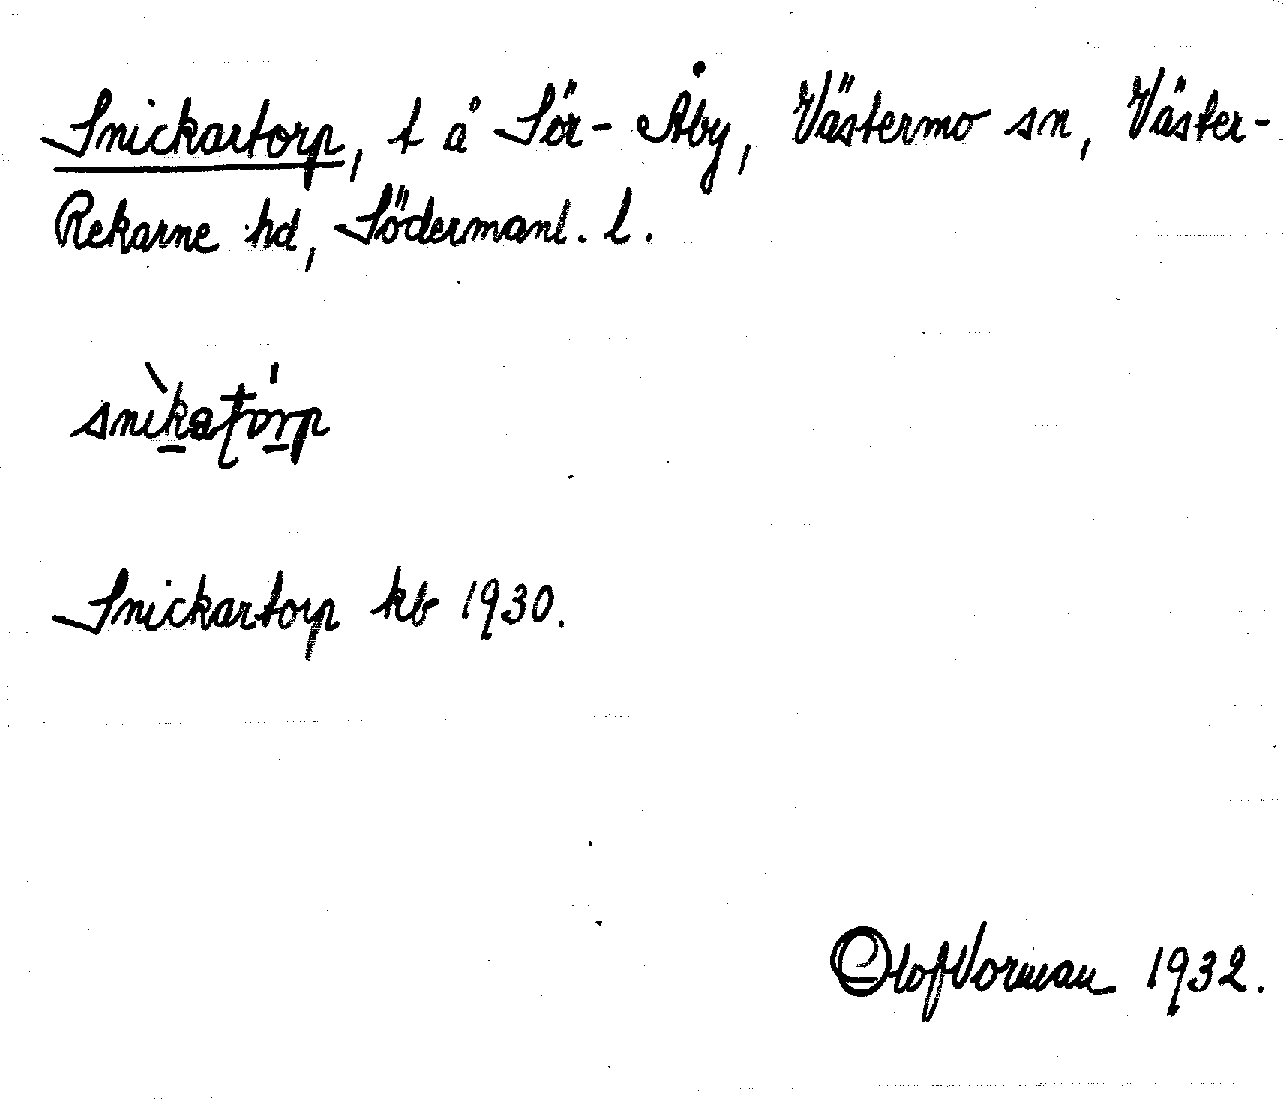 Snickartorp, t å Sör-Åby, Västermo sn, Väster-
Rekarne hd, Södermanl. l.
snìk̲atór̲p
Snickartorp kb 1930.
Olof Vorman 1932.